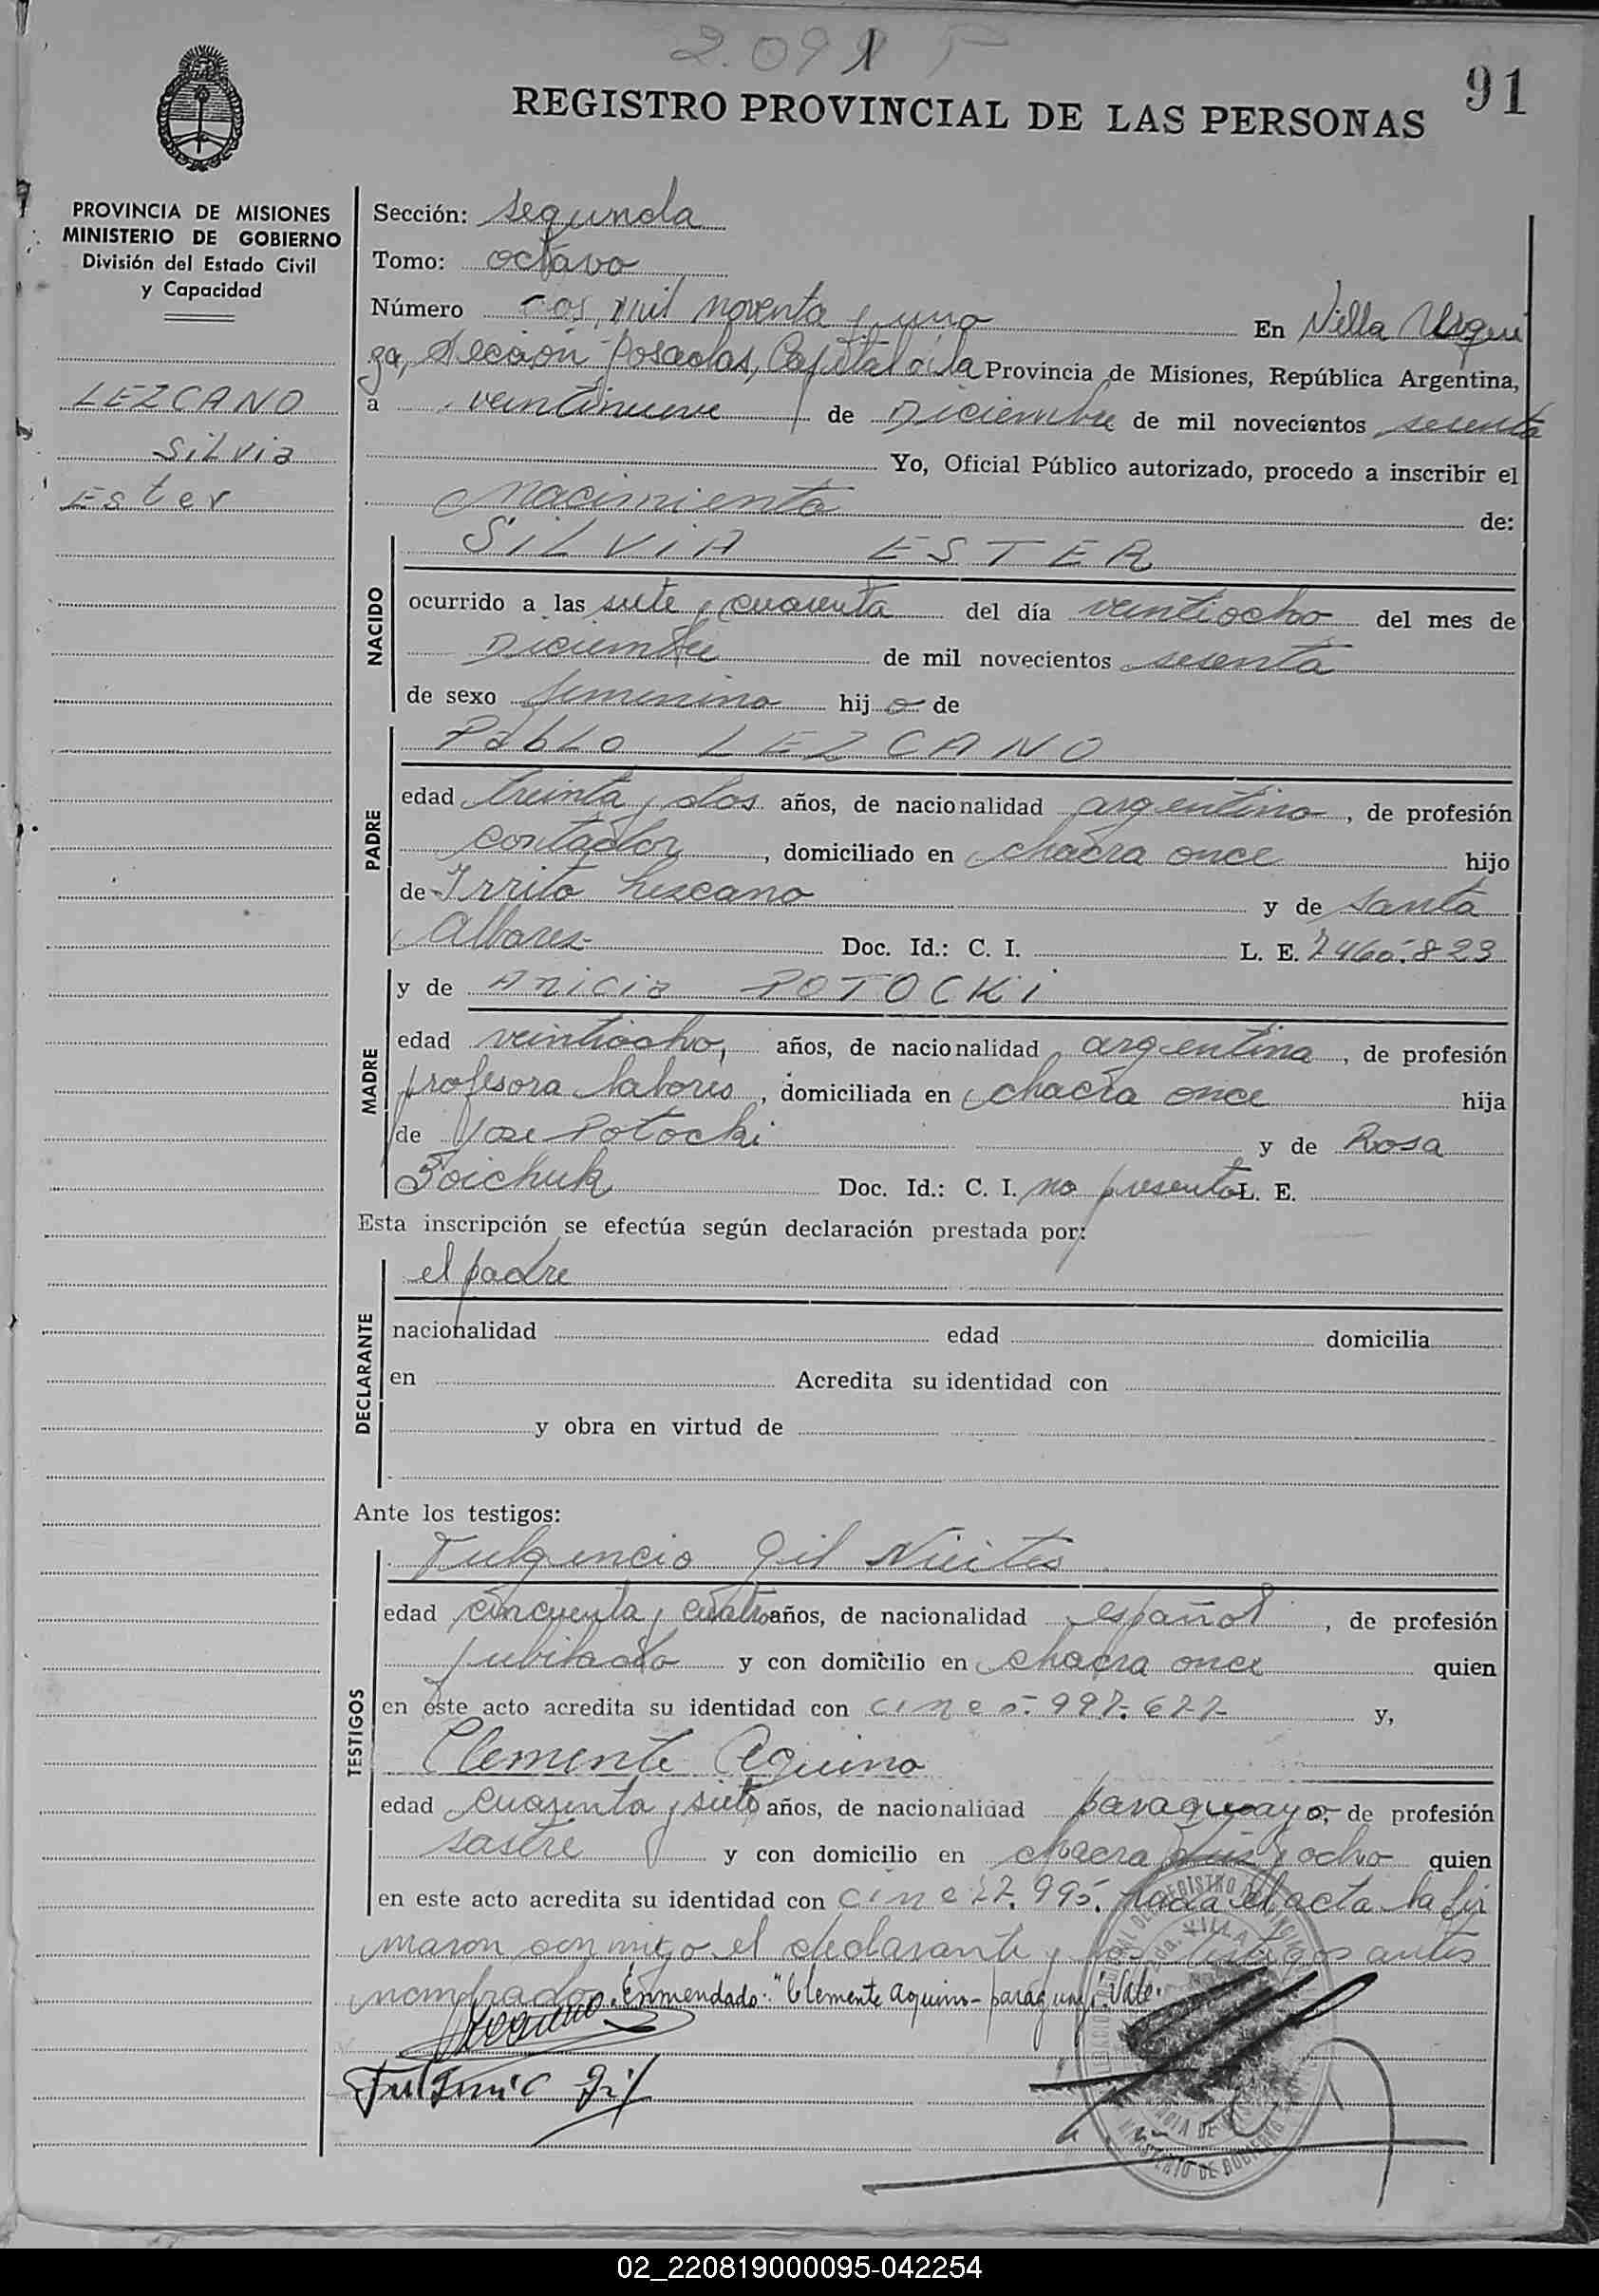 2.091
91
REGISTRO PROVINCIAL DE LAS PERSONAS
PROVINCIA DE MISIONES
MINISTERIO DE GOBIERNO
División del Estado Civil
y Capacidad
LEZCANO
Silvia
Ester
Sección: segunda
Tomo: octavo
Número dos mil noventa y uno En Villa Urqui
za, Sección Posadas, Capital de la Provincia de Misiones, República Argentina,
a veintinueve de Diciembre de mil novecientos sesenta
Yo, Oficial Público autorizado, procedo a inscribir el
Nacimiento de:
SILVIA ESTER
NACIDO
ocurrido a las siete y cuarenta del día veintiocho del mes de
Diciembre de mil novecientos sesenta
de sexo femenino hij a de
Pablo LEZCANO
PADRE
edad treinta y dos años, de nacionalidad argentino, de profesión
contador, domiciliado en chacra once hijo
de Irrito Lezcano y de Santa
Albarez Doc. Id.: C. I. L. E. 7460.823
y de Anicia POTOCKI
MADRE
edad veintiocho, años, de nacionalidad argentina, de profesión
profesora labores, domiciliada en chacra once hija
de José Potocki y de Rosa
Soichuk Doc. Id.: C. I. no presenta L. E.
Esta inscripción se efectúa según declaración prestada por:
el padre
DECLARANTE
nacionalidad edad domicilia
en Acredita su identidad con
y obra en virtud de
Ante los testigos:
Fulgencio Gil Nieites
TESTIGOS
edad cincuenta y cuatro años, de nacionalidad español, de profesión
jubilado y con domicilio en chacra once quien
en este acto acredita su identidad con y,
Clemente Aquino
edad cuarenta y siete años, de nacionalidad paraguayo, de profesión
sastre y con domicilio en chacra diez y ocho quien
en este acto acredita su identidad con el acta la fir
maron conmigo el declarante y los testigos antes
nombrados. Enmendado: "Clemente Aquino - paraguay". Vale.
Fulgenic Gil
MINISTERIO DE GOBIERNO
02_220819000095-042254